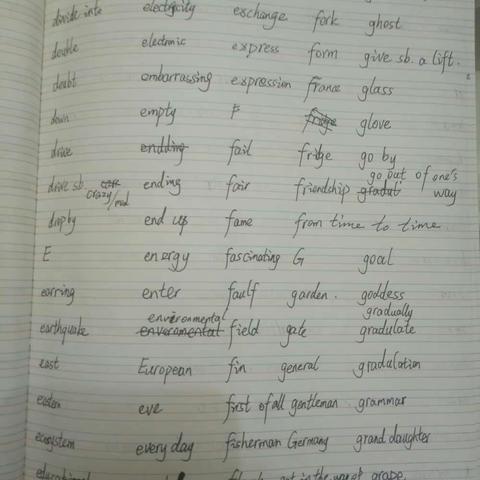 divide into electricity exchange fork ghost
double electronic express form give sb. a lift.
doubt embarrassing expression France glass
down empty F fridge glove
drive endding fail fridge go by
drive sb. crazy/mad ending fair friendship go out of one's way
drop by end up fame from time to time
E energy fascinating G goal
earring enter faulf garden. goddess
gradually
environmental
earthquake enveromental field gate gradulate
east European fin general gradulation
eastern eve first of all gentleman grammar
ecosystem every day fisherman Germany grand daughter
educational get in the way of grape